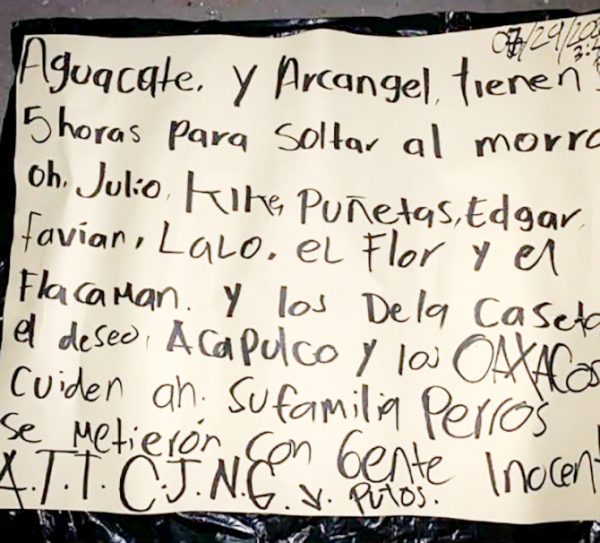 07/29/20
3:
Aguacate. y Arcangel, tienen
5 horas para Soltar al morro
oh. Julio, kike, Puñetas, Edgar,
favian, LaLo, eL Flor y el
Flacaman. y los Dela Caseta
el deseo, Acapulco y los OAXACOS
Cuiden ah. Sufamilia Perros
Se Metierón Con Gente Inocent
A.T.T. C.J.N.G. y. Putos.